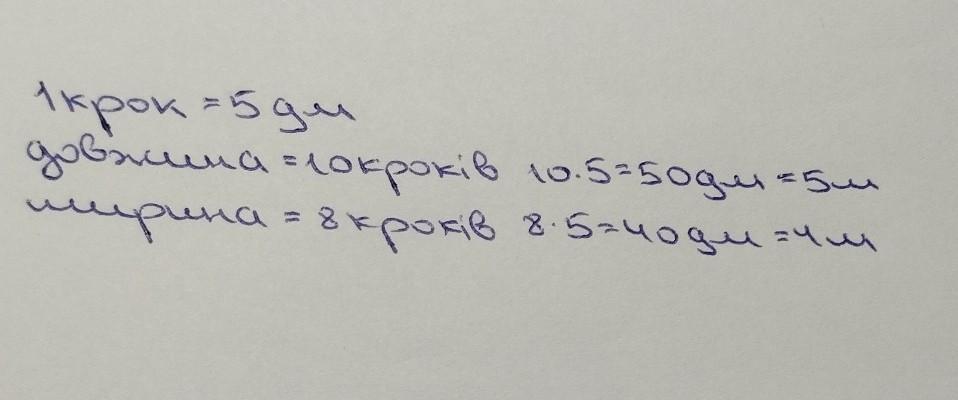 1крок = 5 дм
довжина = 10кроків 10·5=50дм = 5м
ширина = 8 кроків 8·5=40дм = 4м